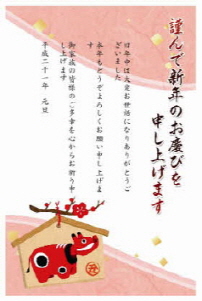 謹んで新年のお慶びを
申し上げます
旧年中は大変お世話になりありがとうご
ざいました
本年もどうぞよろしくお願い申し上げま
す
御家族の皆様のご多幸を心からお祈り申
し上げます
平成二十一年 元旦